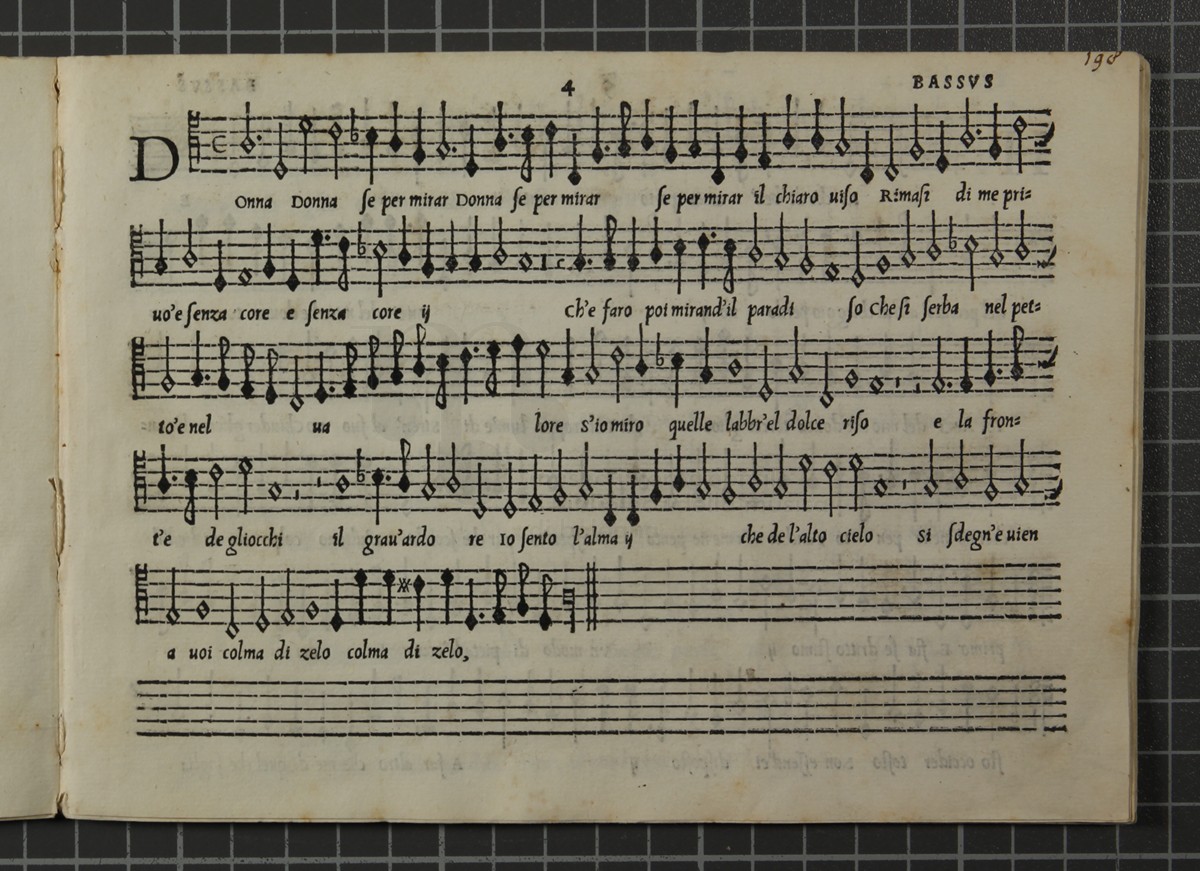 198
4 BASSVS
DOnna Donna se per mirar Donna se per mirar se per mirar il chiaro uiso Rimasi di me pri=
uo'e senza core e senza core ij Ch'e faro poi mirand'il paradi so Che si serba nel pet=
to'e nel ua lore s'io miro quelle labbr'el dolce riso e la fron=
t'e de gliocchi il grau'ardo re Io sento l'alma ij che de l'alto cielo Si sdegn'e uien
a uoi colma di zelo colma di zelo,